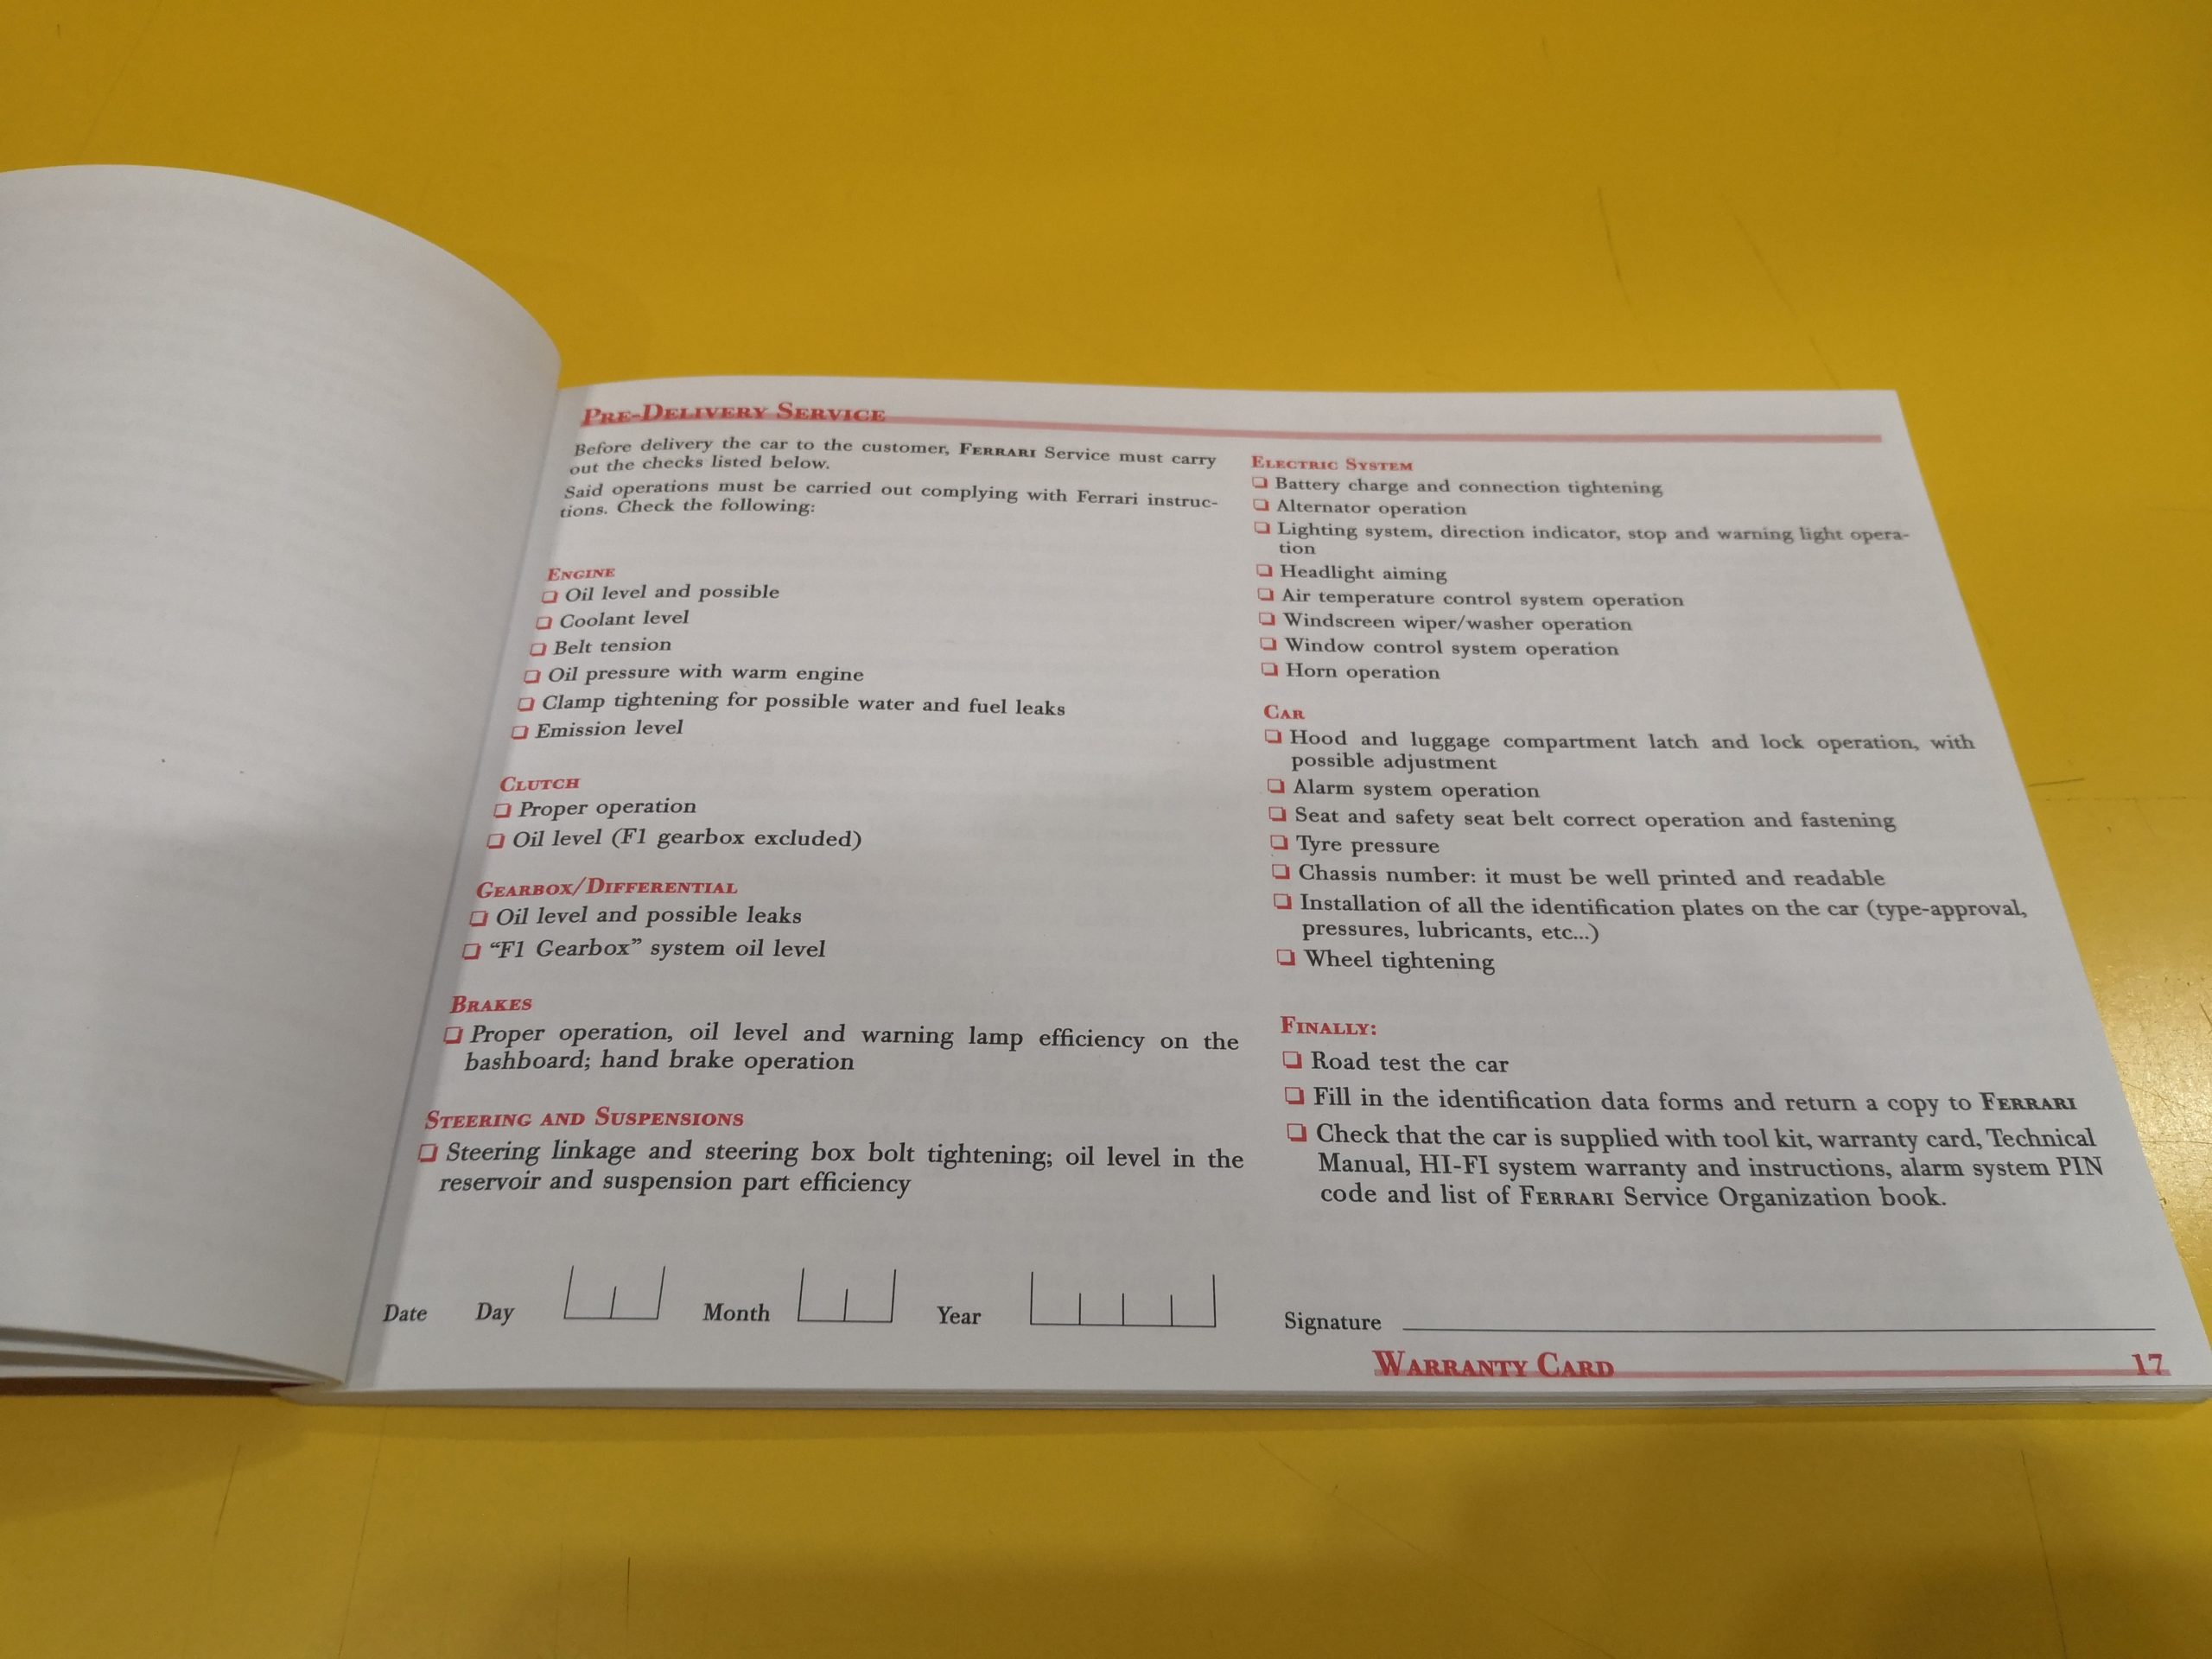 PRE-DELIVERY SERVICE
Before delivery the car to the customer, FERRARI Service must carry
out the checks listed below.
Said operations must be carried out complying with Ferrari instruc-
tions. Check the following:
ENGINE
❏ Oil level and possible
❏ Coolant level
❏ Belt tension
❏ Oil pressure with warm engine
❏ Clamp tightening for possible water and fuel leaks
❏ Emission level
CLUTCH
❏ Proper operation
❏ Oil level (F1 gearbox excluded)
GEARBOX/DIFFERENTIAL
❏ Oil level and possible leaks
❏ “F1 Gearbox” system oil level
BRAKES
❏ Proper operation, oil level and warning lamp efficiency on the
bashboard; hand brake operation
STEERING AND SUSPENSIONS
❏ Steering linkage and steering box bolt tightening; oil level in the
reservoir and suspension part efficiency
ELECTRIC SYSTEM
❏ Battery charge and connection tightening
❏ Alternator operation
❏ Lighting system, direction indicator, stop and warning light opera-
tion
❏ Headlight aiming
❏ Air temperature control system operation
❏ Windscreen wiper/washer operation
❏ Window control system operation
❏ Horn operation
CAR
❏ Hood and luggage compartment latch and lock operation, with
possible adjustment
❏ Alarm system operation
❏ Seat and safety seat belt correct operation and fastening
❏ Tyre pressure
❏ Chassis number: it must be well printed and readable
❏ Installation of all the identification plates on the car (type-approval,
pressures, lubricants, etc...)
❏ Wheel tightening
FINALLY:
❏ Road test the car
❏ Fill in the identification data forms and return a copy to FERRARI
❏ Check that the car is supplied with tool kit, warranty card, Technical
Manual, HI-FI system warranty and instructions, alarm system PIN
code and list of FERRARI Service Organization book.
Date Day Month Year Signature
WARRANTY CARD 17